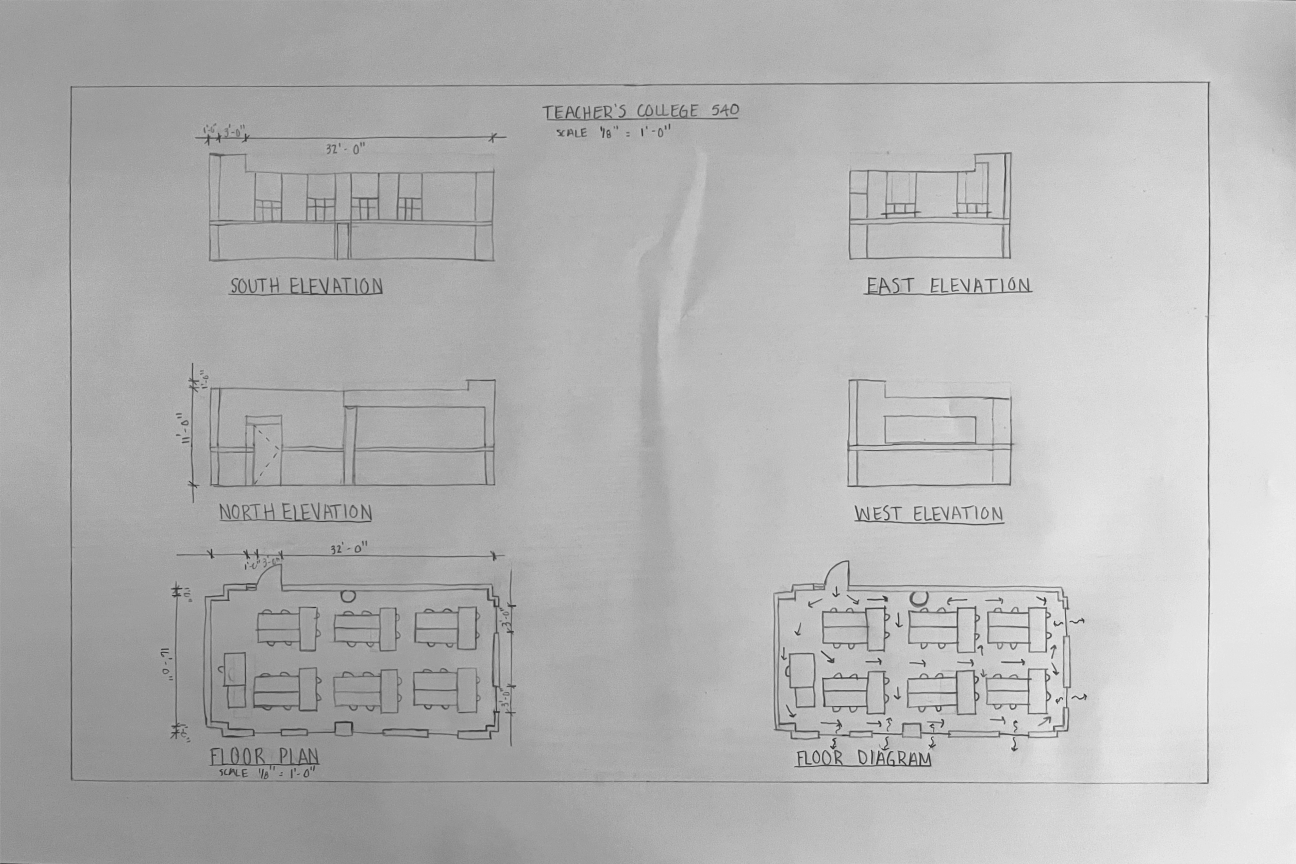 TEACHER'S COLLEGE 540
SCALE 1/8" = 1'-0"
1'-0" 3'-0"
32'-0"
SOUTH ELEVATION
EAST ELEVATION
1'-0"
11'-0"
NORTH ELEVATION
WEST ELEVATION
32'-0"
1'-0" 3'-0"
3'-0"
3'-0"
FLOOR PLAN
SCALE 1/8" = 1'-0"
FLOOR DIAGRAM